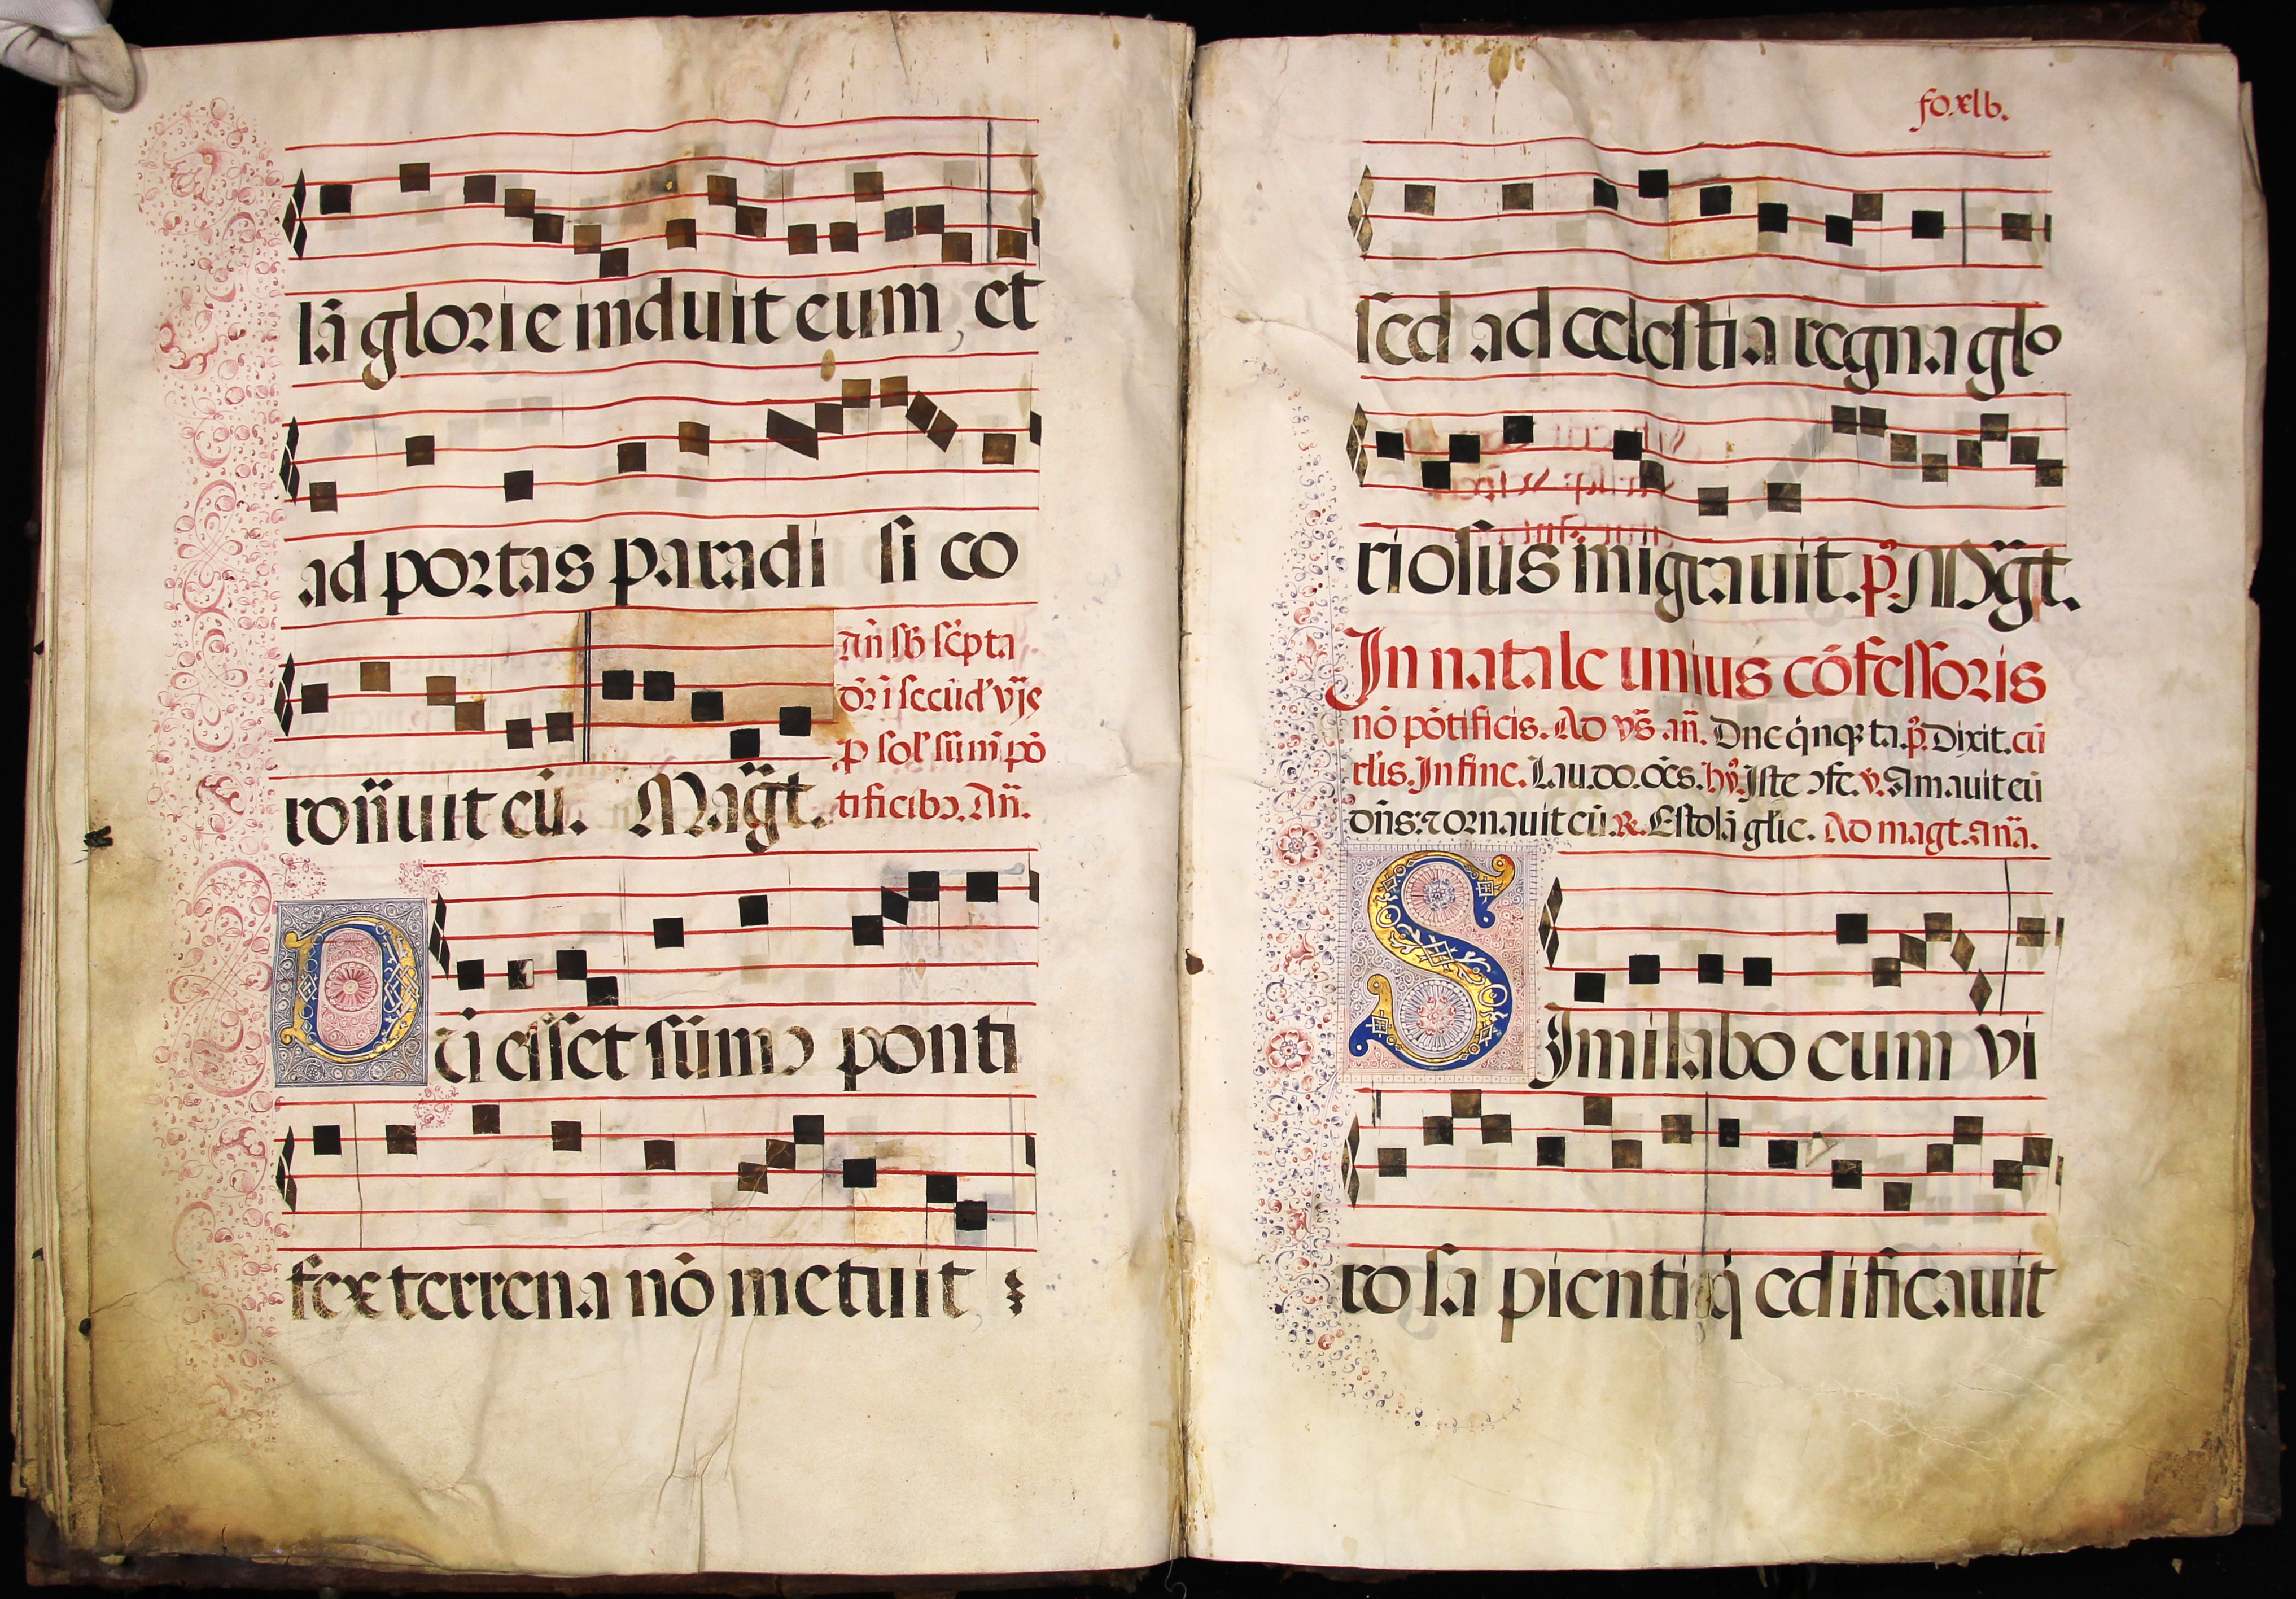 lā glorie induit eum, et
ad portas paradi si co
ronauit eū. Magt.
añ sb scpta
ōr i secūd' vṗe
p sol' sūm pō
tificibȝ. Añ.
Dū esset sūmꝰ ponti
fex terrena nō metuit
fo. xlb.
sed ad celestia regna glo
riosus migrauit. p̄. Magt.
In natale unius cōfessoris
nō pōtificis. Ad vs̄. añ. Dne q̇nqꝫ ta. p̄. Dixit. cū
rlis. In fine. Lau. do. oēs. hỹ. Iste ɔfe. v. Amauit eū
dn̄s: ⁊ ornauit eū. R. Estolā glie. Ad magt. anā.
Similabo eum vi
ro sa pienti q̇ edificauit